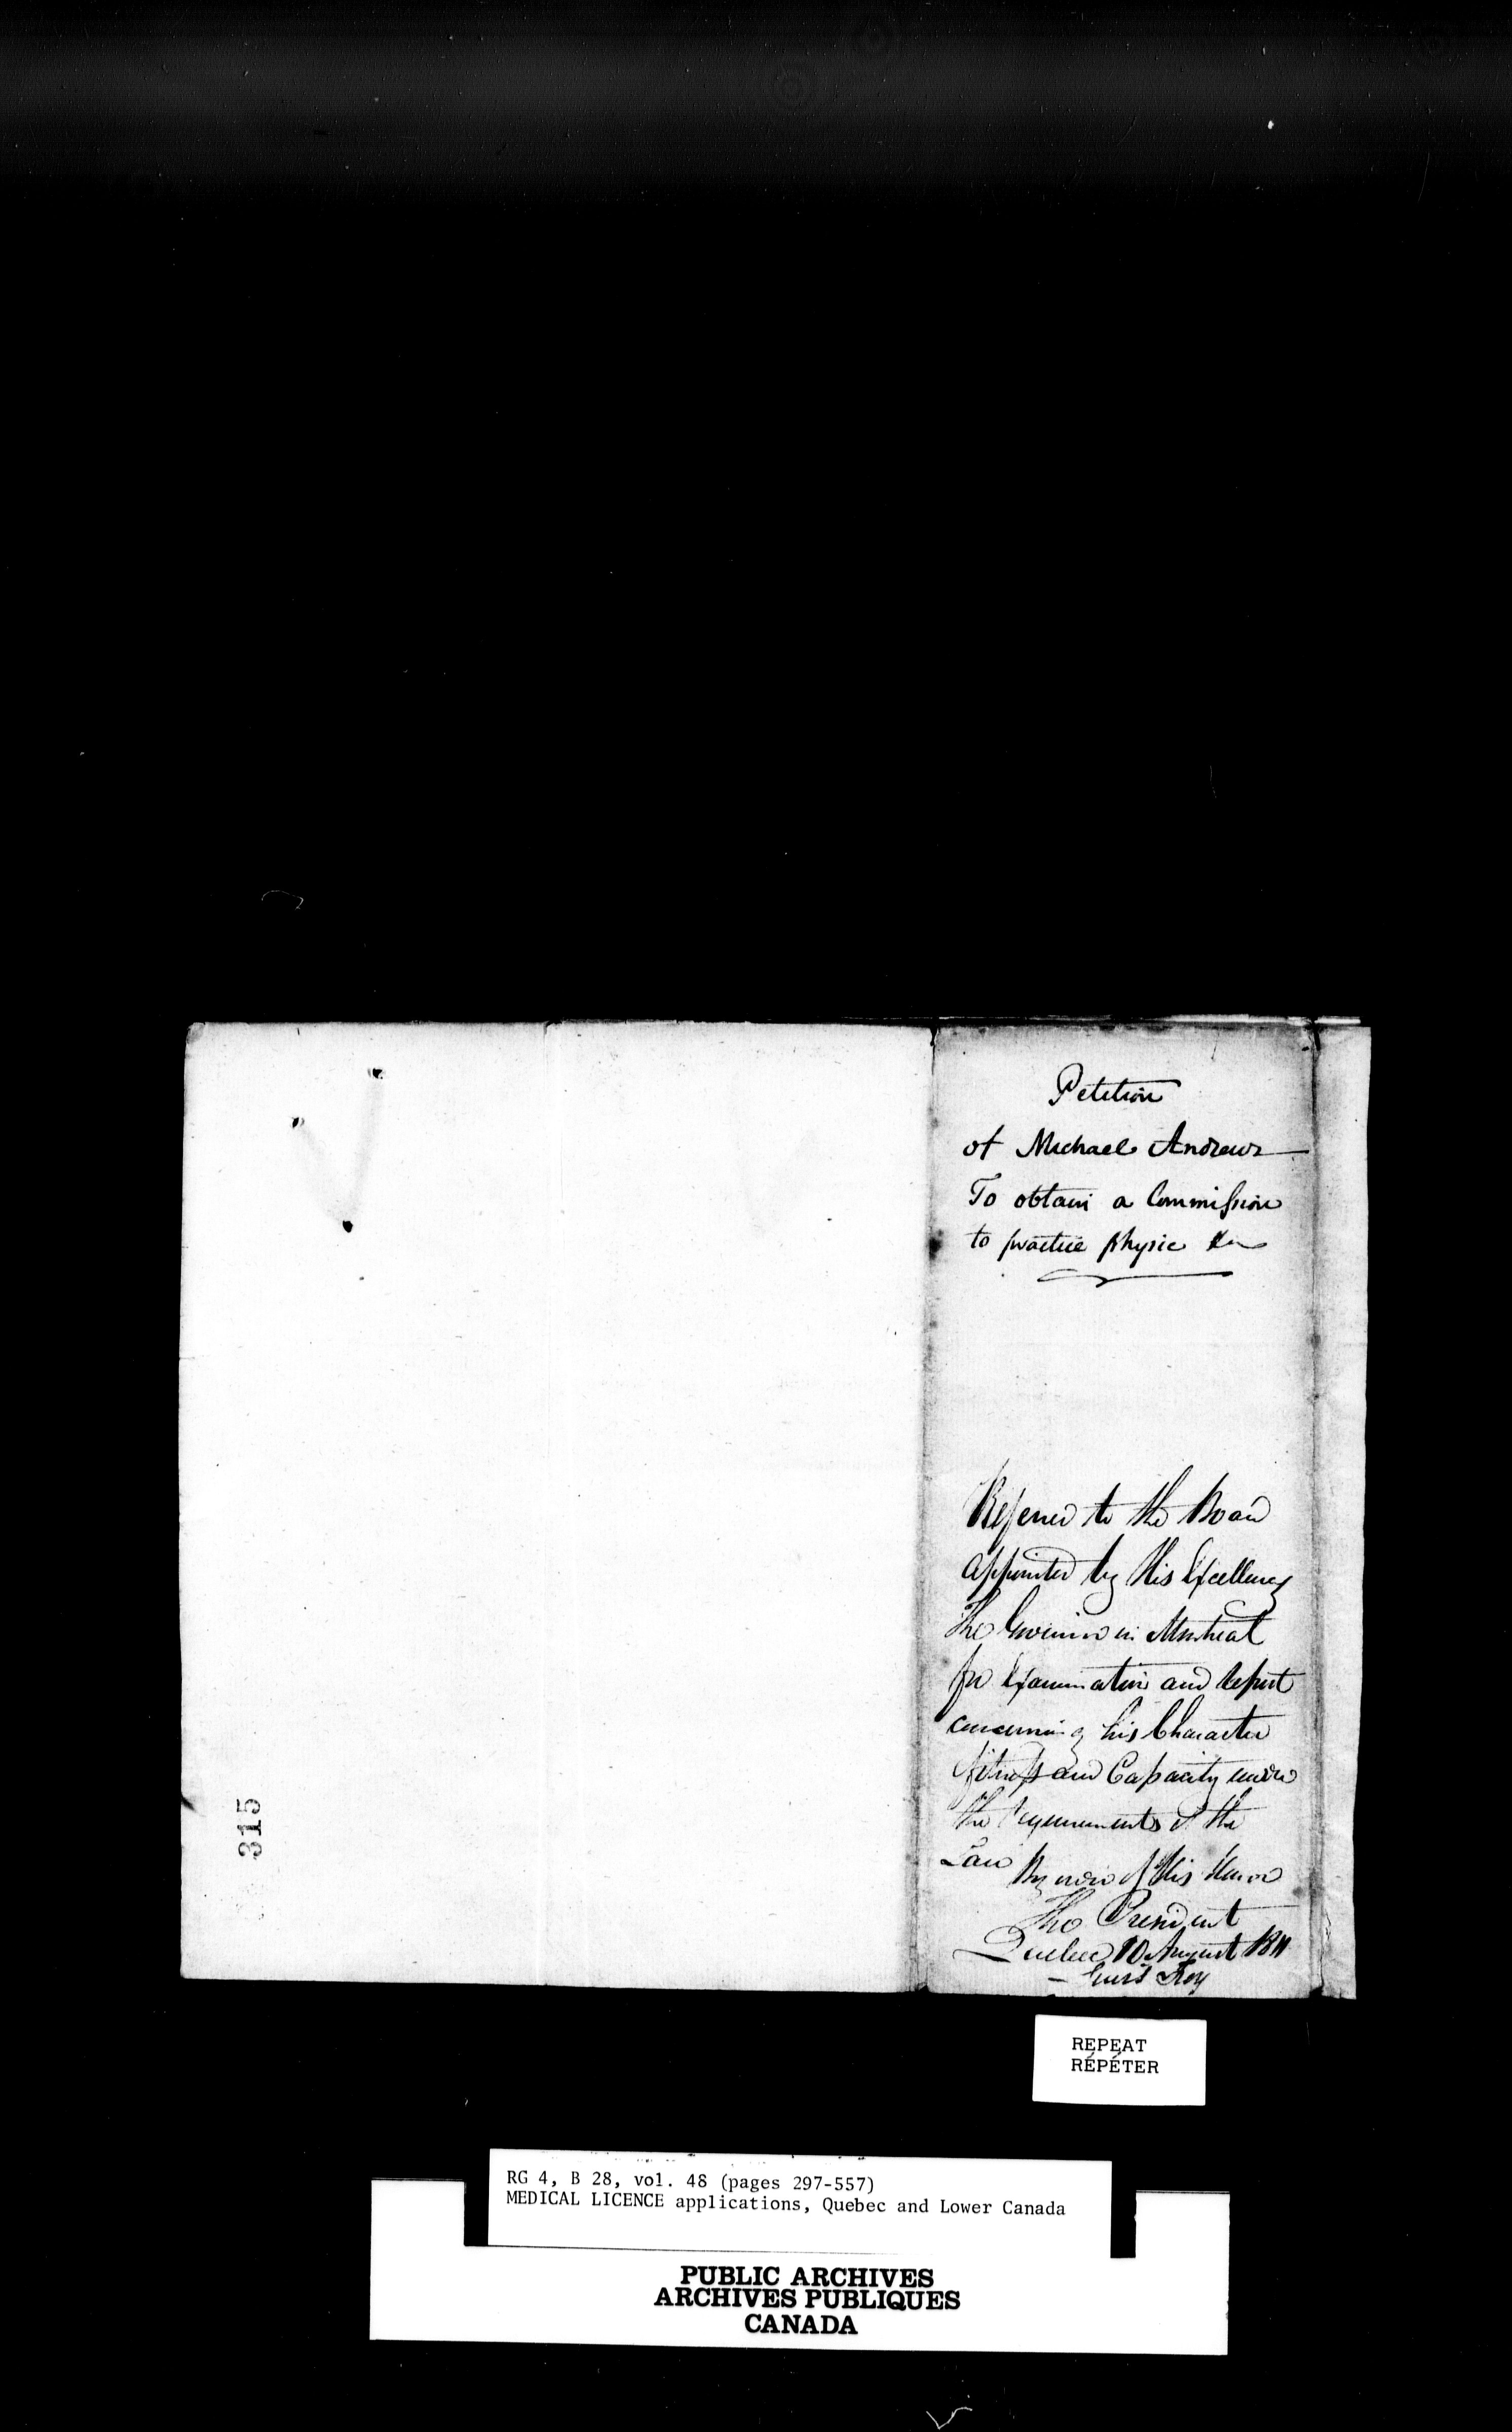 Petition
of Michael Andrews
To obtain a Commission
to practice physic &c
Referred to the Board
appointed by His Excellency
The Governor in Montreal
for Examination and report
concerning his Character
fitness and Capacity under
the requirements of the
Law
By order of His Honor
The President
Quebec 10 August 1811
Roy
315
REPEAT
RÉPÉTER
RG 4, B 28, vol. 48 (pages 297-557)
MEDICAL LICENCE applications, Quebec and Lower Canada
PUBLIC ARCHIVES
ARCHIVES PUBLIQUES
CANADA